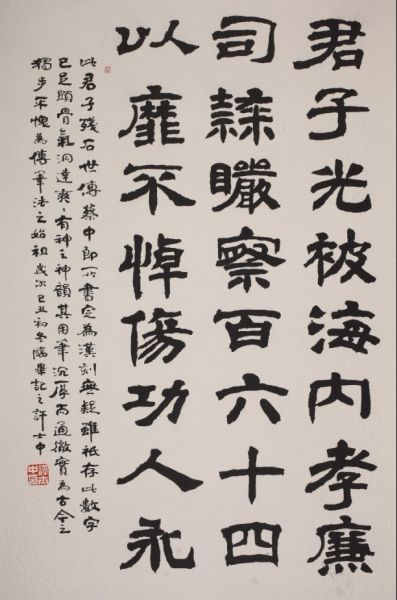 君子光被海内孝廉
司隸察百六十四
以靡不悼傷功人永
此君子殘石世傳蔡中郎所書定為漢刻無疑雖衹存此數字
已足顯骨氣洞達爽爽有神之神韻其用筆沉厚通徹實為古今之
獨步不愧為傳筆法之始祖歲次己丑初冬臨畢記之許士中